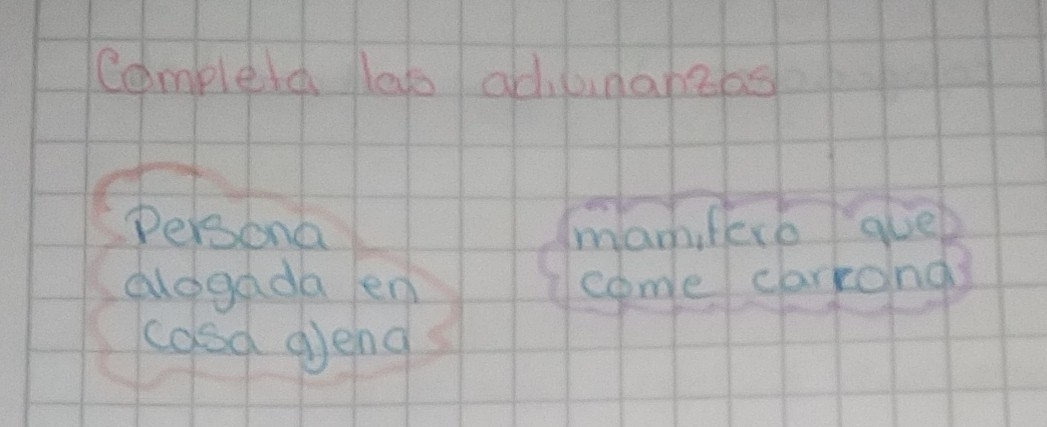 Completa las adivinanzas
Persona
alogada en
casa ajena
mamifero que
come carrona